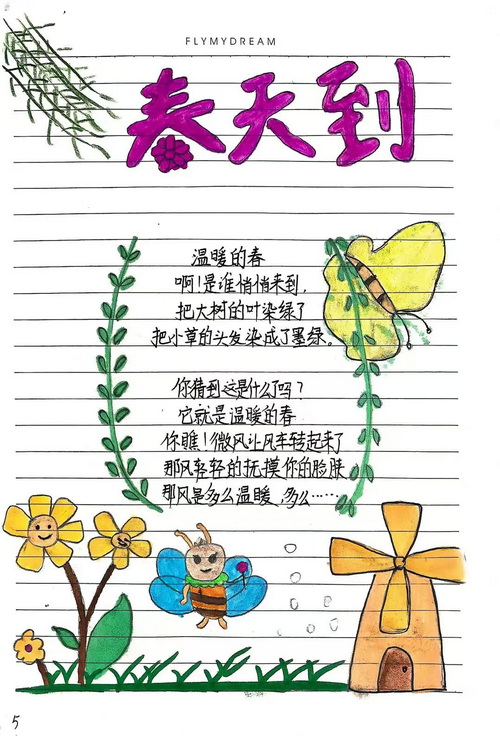 FLYMYDREAM
春天到
温暖的春
啊!是谁悄悄来到,
把大树的叶染绿了
把小草的头发染成了墨绿。
你猜到这是什么了吗?
它就是温暖的春
你瞧!微风让风车转起来了
那风轻轻的抚摸你的脸肤
那风是多么温暖,多么……
5